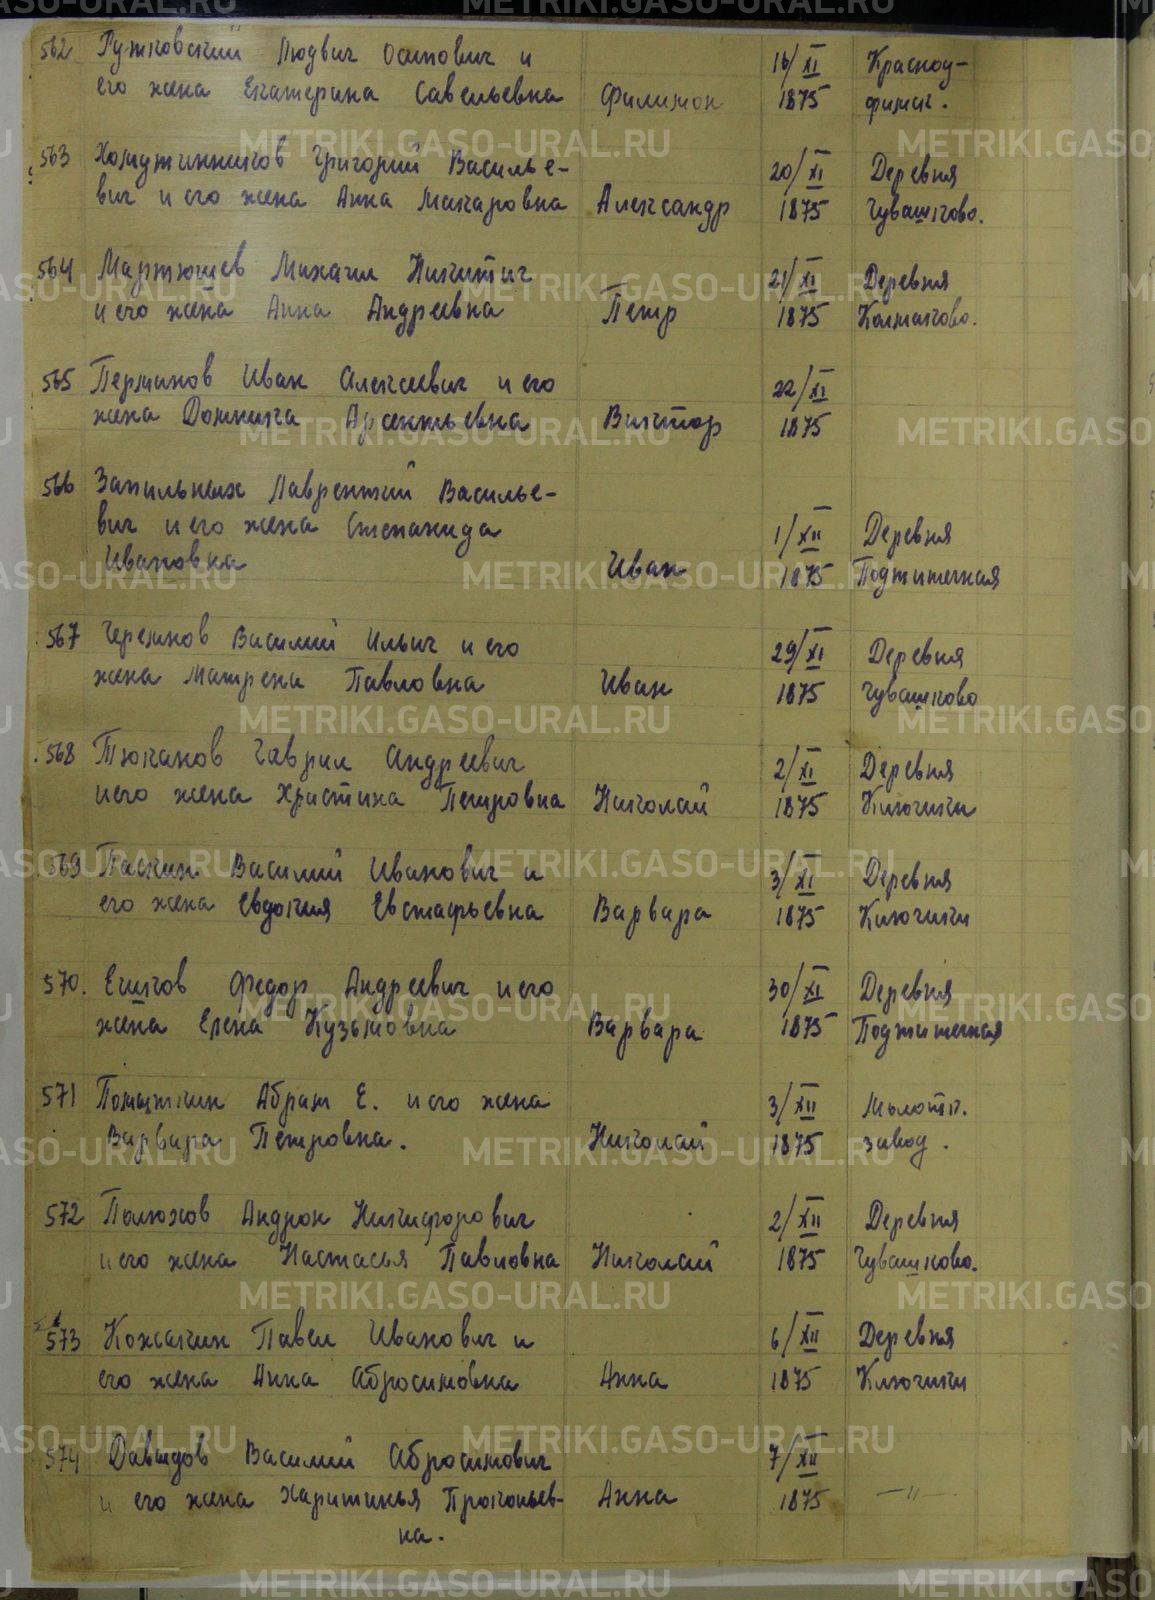 562 Рутковский Людвиг Осипович и
его жена Екатерина Савельевна Филимон 16/XI 1875 Красноу-
фимск.
563 Хомутинников Григорий Василье-
вич и его жена Анна Макаровна Александр 20/XI 1875 Деревня
Чувашково.
564 Мартюшев Михаил Никитич
и его жена Анна Андреевна Петр 21/XI 1875 Деревня
Колмаково.
565 Перминов Иван Алексеевич и его
жена Домника Арсентьевна Виктор 22/XI 1875
566 Запильных Лаврентий Василье-
вич и его жена Степанида
Ивановна Иван 1/XII 1875 Деревня
567 Черемнов Василий Ильич и его
жена Матрена Павловна Иван 29/XI 1875 Деревня
Чувашково
568 Тюканов Гаврил Андреевич
и его жена Христина Петровна Николай 2/XI 1875 Деревня
Ключики
569 Паскин Василий Иванович и
его жена Евдокия Евстафьевна Варвара 3/XI 1875 Деревня
Ключики
570. Ешков Федор Андреевич и его
жена Елена Кузьмовна Варвара 30/XI 1875 Деревня
571 Абрам Е. и его жена
Варвара Петровна. Николай 3/XII 1875
завод.
572 Полюхов Андрон Никифорович
и его жена Настасья Павловна Николай 2/XII 1875 Деревня
Чувашково.
573 Кожакин Павел Иванович и
его жена Анна Абросимовна Анна 6/XII 1875 Деревня
Ключики
574 Давыдов Василий Абросимович
и его жена Харитинья Прокопьев-
на. Анна 7/XII 1875 —"—
METRIKI.GASO-URAL.RU